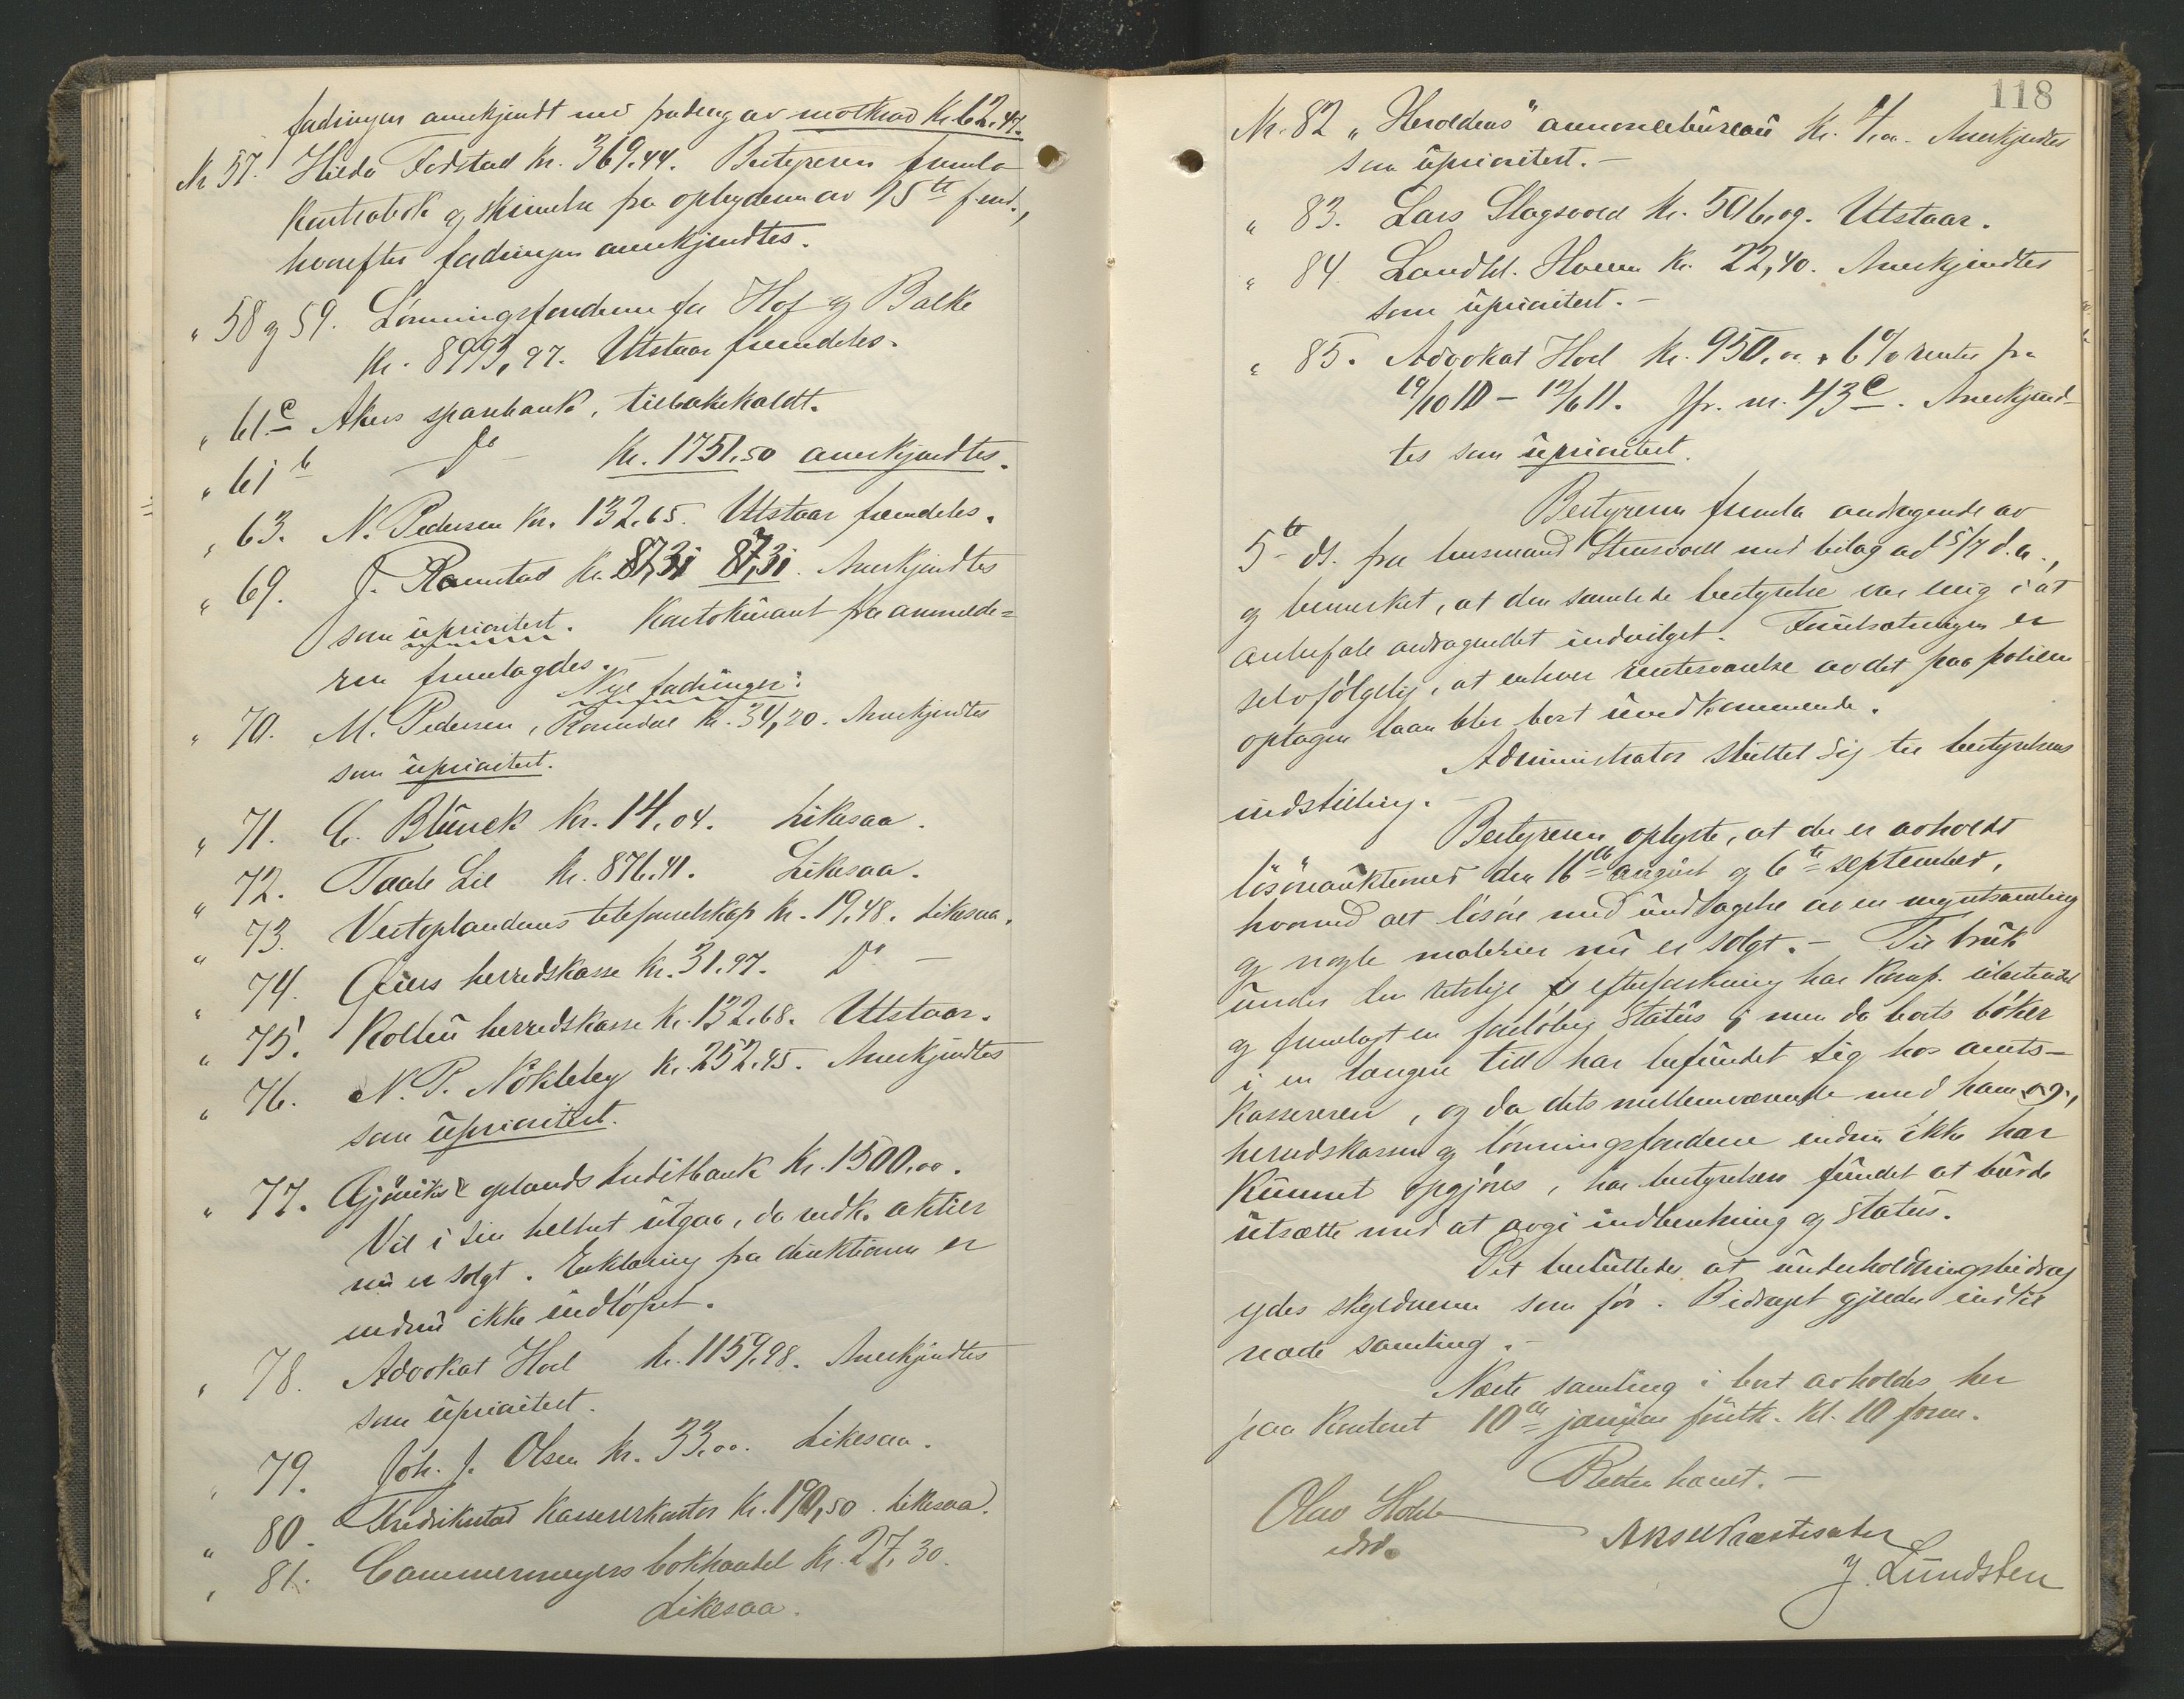 fordringen anerkjendt med fradrag av motkrav Kr. 62.47.
Nr 57. Hilda Fodstad Kr. 369.44. Bestyreren fremla
Kontrabok og skrivelse fra opbyderen av 25de f.md.,
hvorefter fordringen anerkjendtes.
" 58 og 59. Lønningsfondene for Hof og Balke
Kr. 8993,97. Utstaar fremdeles.
" 61c Akers sparebank, tilbakekaldt.
" 61b — Do — Kr. 1751.50 anerkjendtes.
" 63. N. Pedersen Kr. 132.65. Utstaar fremdeles.
" 69. J. Ramstad Kr. 87,31 87,31. Anerkjendtes
som uprioritert. Kontokurant fra anmelde=
ren fremlagdes.—
Nye fordringer:
" 70. M. Pedersen, Romedal Kr. 34,20. Anerkjendtes
som uprioritert.
" 71. C. Blunck Kr. 14.04. Likesaa.
" 72. Taale Lie Kr. 876.41. Likesaa.
" 73. Vestoplandenes telefonselskap Kr. 19,48. Likesaa.
" 74. Eiers herredskasse Kr. 31.97. Do —
" 75. Kolbu herredskasse Kr. 132.68. Utstaar.
" 76. N. P. Nökleby Kr. 252.45. Anerkjendtes
som uprioritert.
" 77. Gjøviks & oplands kreditbank Kr. 1500.00.
Vil i sin helhet utgaa, da vedk. aktier
nu er solgt. Erklæring fra direktionen er
endnu ikke indløpet.
" 78. Advokat Hoel Kr. 1159,98. Anerkjendtes
som uprioritert.
" 79. Joh. J. Olsen Kr. 33.00. Likesaa.
" 80. Fredrikstad Kassererkontor Kr. 190,50. Likesaa.
" 81. Cammermeyers bokhandel Kr. 27,30.
Likesaa.
118
Nr. 82 "Heroldens" annoncebureau Kr. Anerkjendtes
som uprioritert.—
" 83. Lars Slagsvold Kr. 506.09. Utstaar.
" 84. Landhl. Hoven Kr. 22,40. Anerkjendtes
som uprioritert.—
" 85. Advokat Hoel Kr. 950,00 + 6% renter fra
19/10 10 – 12/6 11. Jfr. nr. 43c. Anerkjend-
tes som uprioritert.
Bestyreren fremla andragende av
5te ds. fra lensmand Stensvold med bilag av 5/7 d.a.,
og bemerket, at den samlede bestyrelse var enig i at
anbefale andragendet indvilget. Forutsætningen er
selvfølgelig, at enhver rentesvarelse av det paa polisen
optagne laan blir bort uvedkommende.
Administrator sluttet sig til bestyrelsens
indstilling.—
Bestyreren oplyste, at der er avholdt
løsøreauktioner den 16de august og 6te september,
hvorved alt løsøre med undtagelse av en myntsamling
og nogle malerier nu er solgt.— Til bruk
under den retslige efterforskning har Komp. utarbeidet
og fremlagt en foreløbig status; men da boets bøker
i en længere tid har befundet sig hos amts-
kassereren, og da dets mellemværende med ham og
herredskassen og lønningsfondene endnu ikke har
kunnet opgjøres, har bestyrelsen fundet at burde
utsætte med at avgi indberetning og status.
Det besluttedes at underholdningsbidrag
ydes skyldneren som før. Bidraget gjælder indtil
næste samling.—
Næste samling i boet avholdes her
paa kontoret 10de januar førstk. kl. 10 form.
Retten hævet.—
Olav Holte
edsv.
Aksel Præstesæter
J. Lundsten